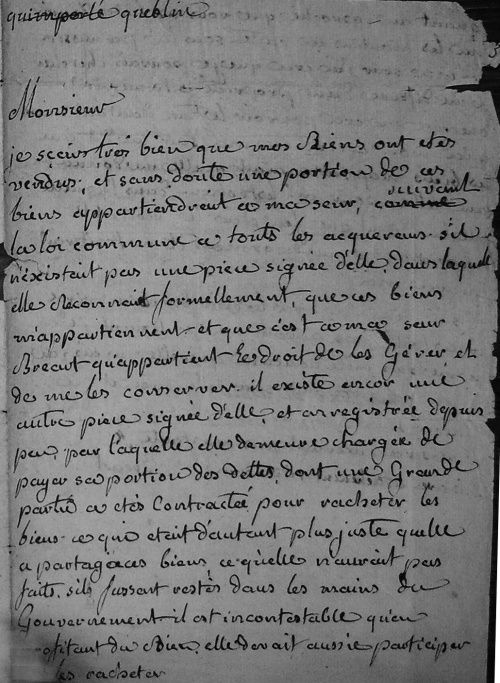 qu'importé queblin
Monsieur
je sçais trés bien que mes Biens ont etés
vendus. et sans doute une portion de ces
biens appartiendrait a ma seur, comme suivant
la loi commune a touts les acquereurs. s'il
n'éxistait pas une piece signée d'elle, dans laquelle
elle Reconnait formellement, que ces biens
m'appartiennent. et que c'est a ma seur
Breart qu'appartient Le droit de les Gérer et
de me les conserver. il existe encor une
autre piece signée d'elle, et anregistrée depuis
peu, par laquelle elle demeure chargée de
payer sa portion des dettes, dont une Grande
partie a etés Contractée pour racheter les
biens. ce qui etait d'autant plus juste quelle
a partagé aces biens, ce qu'elle n'aurait pas
faits. s'ils fussent restés dans les mains du
Gouvernement il est incontestable qu'en
ofitant du Bien, elle devait aussie participer
les racheter